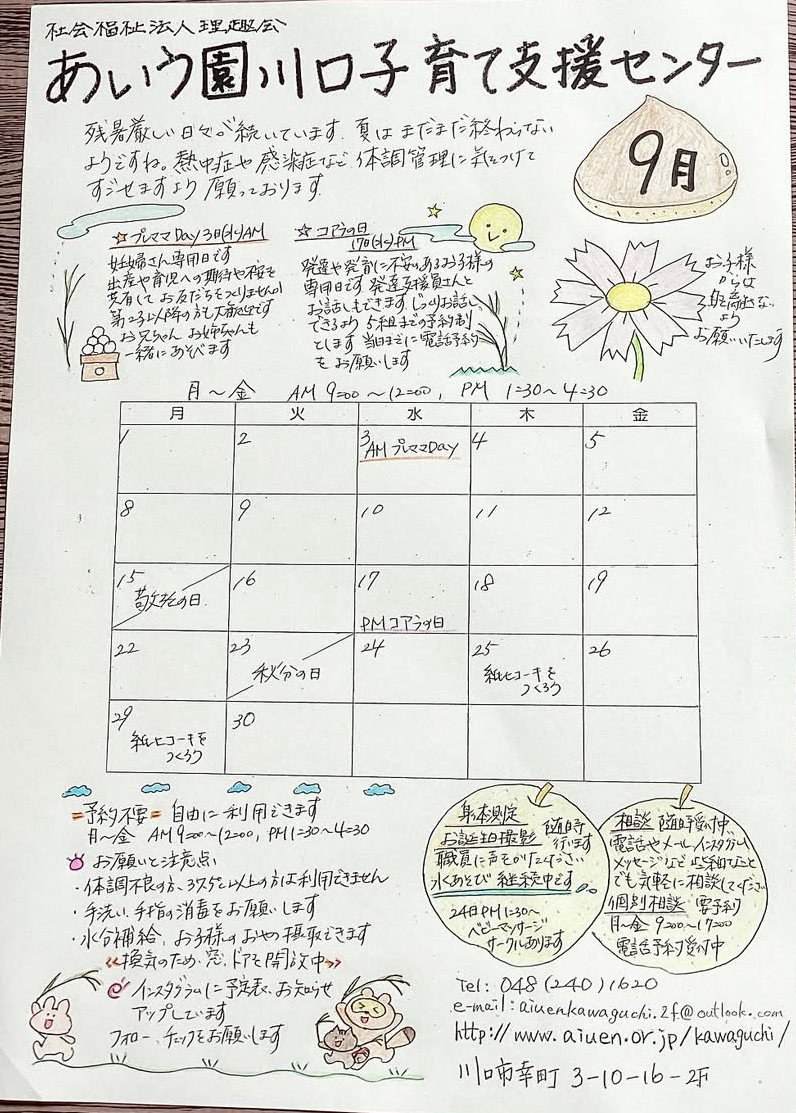 社会福祉法人理趣会
あいう園川口子育て支援センター
残暑厳しい日々が続いています。夏はまだまだ終わらない
ようですね。熱中症や感染症など体調管理に気をつけて
すごせますよう願っております。
9月
☆プレママDay 3日(水)AM
妊婦さん専用日です
出産や育児への期待や不安を
共有してお友だちをつくりませんか
第2子以降の方も大歓迎です
お兄ちゃんお姉ちゃんも
一緒にあそびます
☆コアラの日
17日(水)PM
発達や発育に不安のあるお子様の
専用日です 発達支援員さんと
お話しもできます じっくりお話し
できるよう 5組までの予約制
とします 当日までに電話予約
をお願いします
お子様
からは
目を離さない
よう
お願いいたします
月～金 AM 9:00～12:00, PM 1:30～4:30
月 火 水 木 金
1 2 3 4 5
AM プレママDay
8 9 10 11 12
15 16 17 18 19
敬老の日
PMコアラの日
22 23 24 25 26
秋分の日
紙ヒコーキを
つくろう
29 30
紙ヒコーキを
つくろう
=予約不要= 自由に利用できます
月～金 AM9:00～12:00, PM1:30～4:30
お願いと注意点
・体調不良の方、37.5℃以上の方は利用できません
・手洗い、手指の消毒をお願いします
・水分補給、お子様のおやつ摂取できます
《換気のため、窓、ドアを開放中》
インスタグラムに予定表、お知らせ
アップしています
フォロー、チェックをお願いします
身体測定
お誕生日撮影 随時行います
職員に声をかけてください
水あそび 継続中です
24日PM1:30～
ベビーマッサージ
サークルあります
相談 随時受付中
電話やメール、インスタグラム
メッセージなど
でも気軽に相談してください
個別相談 要予約
月～金 9:00～17:00
電話予約受付中
Tel: 048(240)1620
e-mail: aiuenkawaguchi.2f@outlook.com
http://www.aiuen.or.jp/kawaguchi/
川口市幸町 3-10-16-2F